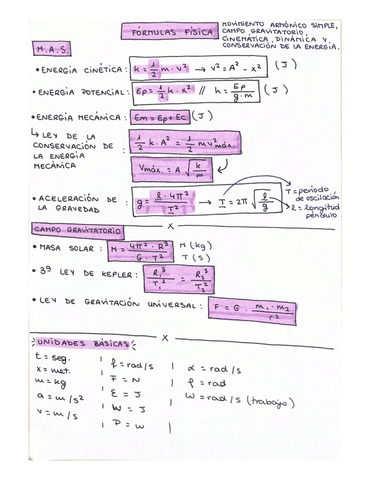 FÓRMULAS FÍSICA
MOVIMIENTO ARMÓNICO SIMPLE,
CAMPO GRAVITATORIO,
CINEMÁTICA, DINÁMICA Y
CONSERVACIÓN DE LA ENERGÍA.
M.A.S.
• ENERGÍA CINÉTICA: K = 1/2 m · v² → v² = A² - x² (J)
• ENERGÍA POTENCIAL: Ep = 1/2 k · x² // h = Ep / g·m (J)
• ENERGÍA MECÁNICA: Em = Ep + Ec (J)
↳ LEY DE LA CONSERVACIÓN DE LA ENERGÍA MECÁNICA : 1/2 k · A² = 1/2 m v² máx.
Vmáx. = A √(k/m)
• ACELERACIÓN DE LA GRAVEDAD : g = l · 4π² / T² → T = 2π √(l/g)
T = período de oscilación
l = longitud péndulo
CAMPO GRAVITATORIO
x
• MASA SOLAR : M = 4π² · R³ / G · T² M (kg) T (s)
• 3ª LEY DE KEPLER : R₁³ / T₁² = R₂³ / T₂²
• LEY DE GRAVITACIÓN UNIVERSAL : F = G · m₁ · m₂ / r²
x
UNIDADES BÁSICAS
t = seg.
x = met.
m = kg
a = m/s²
v = m/s
f = rad/s
F = N
E = J
W = J
P = W
α = rad/s
φ = rad
W = rad/s (trabajo)